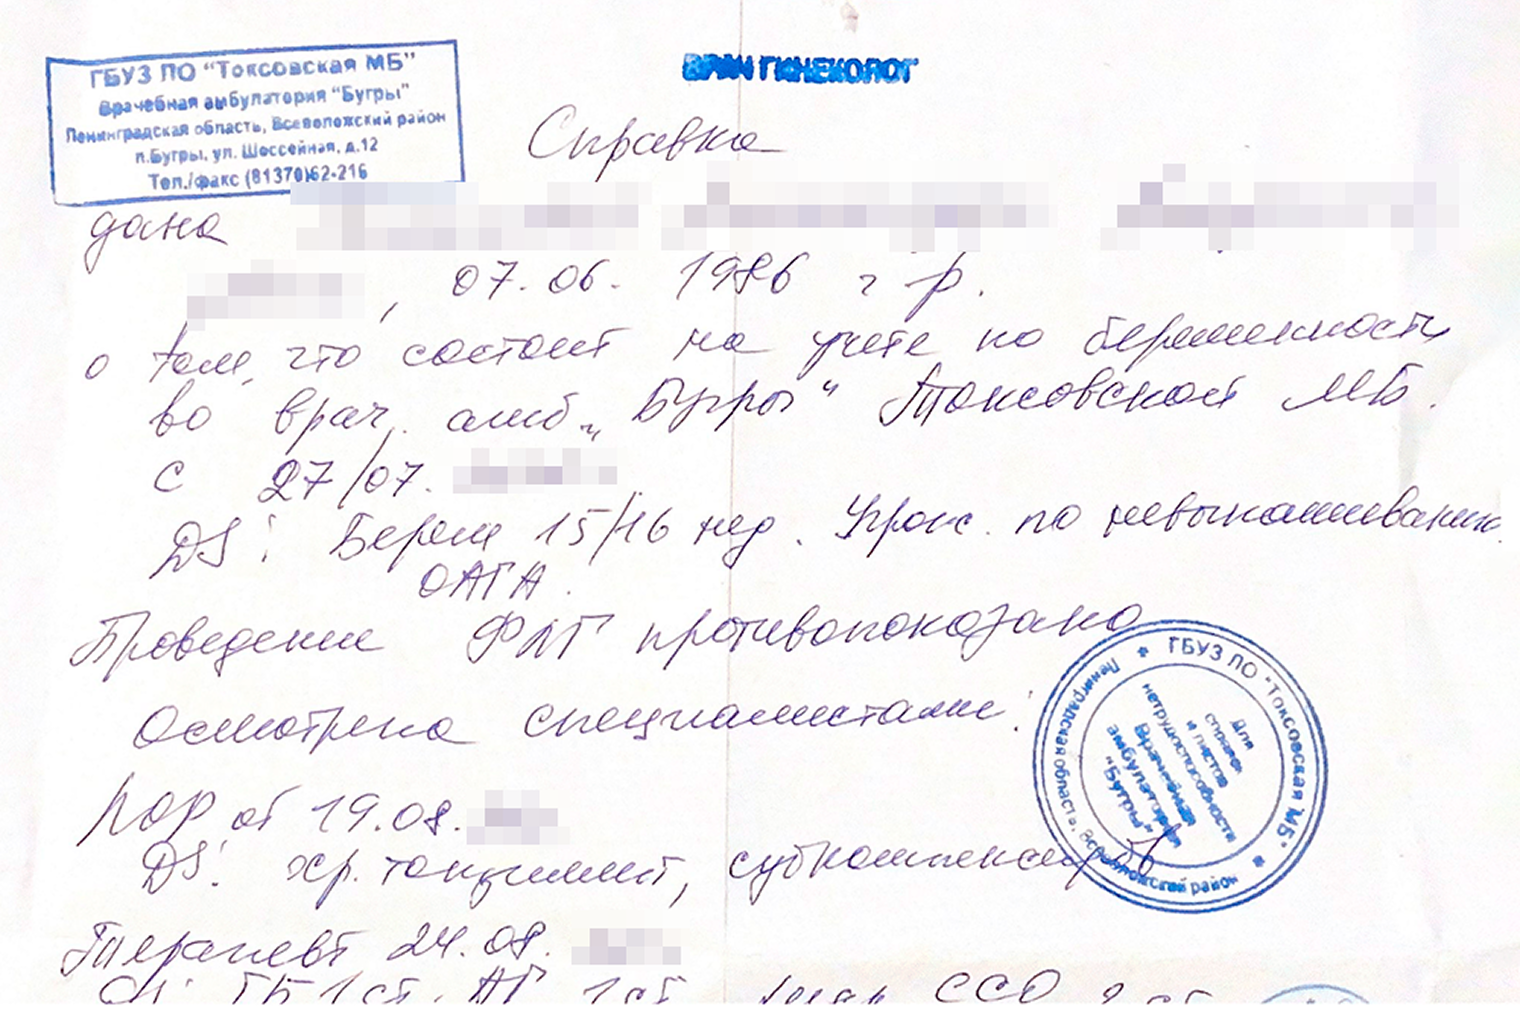 ГБУЗ ЛО "Токсовская МБ"
Врачебная амбулатория "Бугры"
Ленинградская область, Всеволожский район
п.Бугры, ул. Шоссейная, д.12
Тел./факс (81370)62-216
ВРАЧ ГИНЕКОЛОГ
Справка
дана
, 07.06. 1986 г.р.
о том, что состоит на учете по беременности
во врач. амб. „Бугры“ Токсовской МБ.
с 27/07.
DS: Берем 15/16 нед. Угрож. по невынашиванию.
ОАГА.
Проведение ФЛГ противопоказано
Осмотрена специалистами:
ЛОР от 19.08.
DS: хр. тонзиллит, субкомпенсиров
Терапевт 24.08.
ГБ 1 ст. АГ 1 ст. ССО
ГБУЗ ЛО "Токсовская МБ"
Ленинградская область, Всеволожский район
Для
справок
и листов
нетрудоспособности
Врачебная
амбулатория
"Бугры"